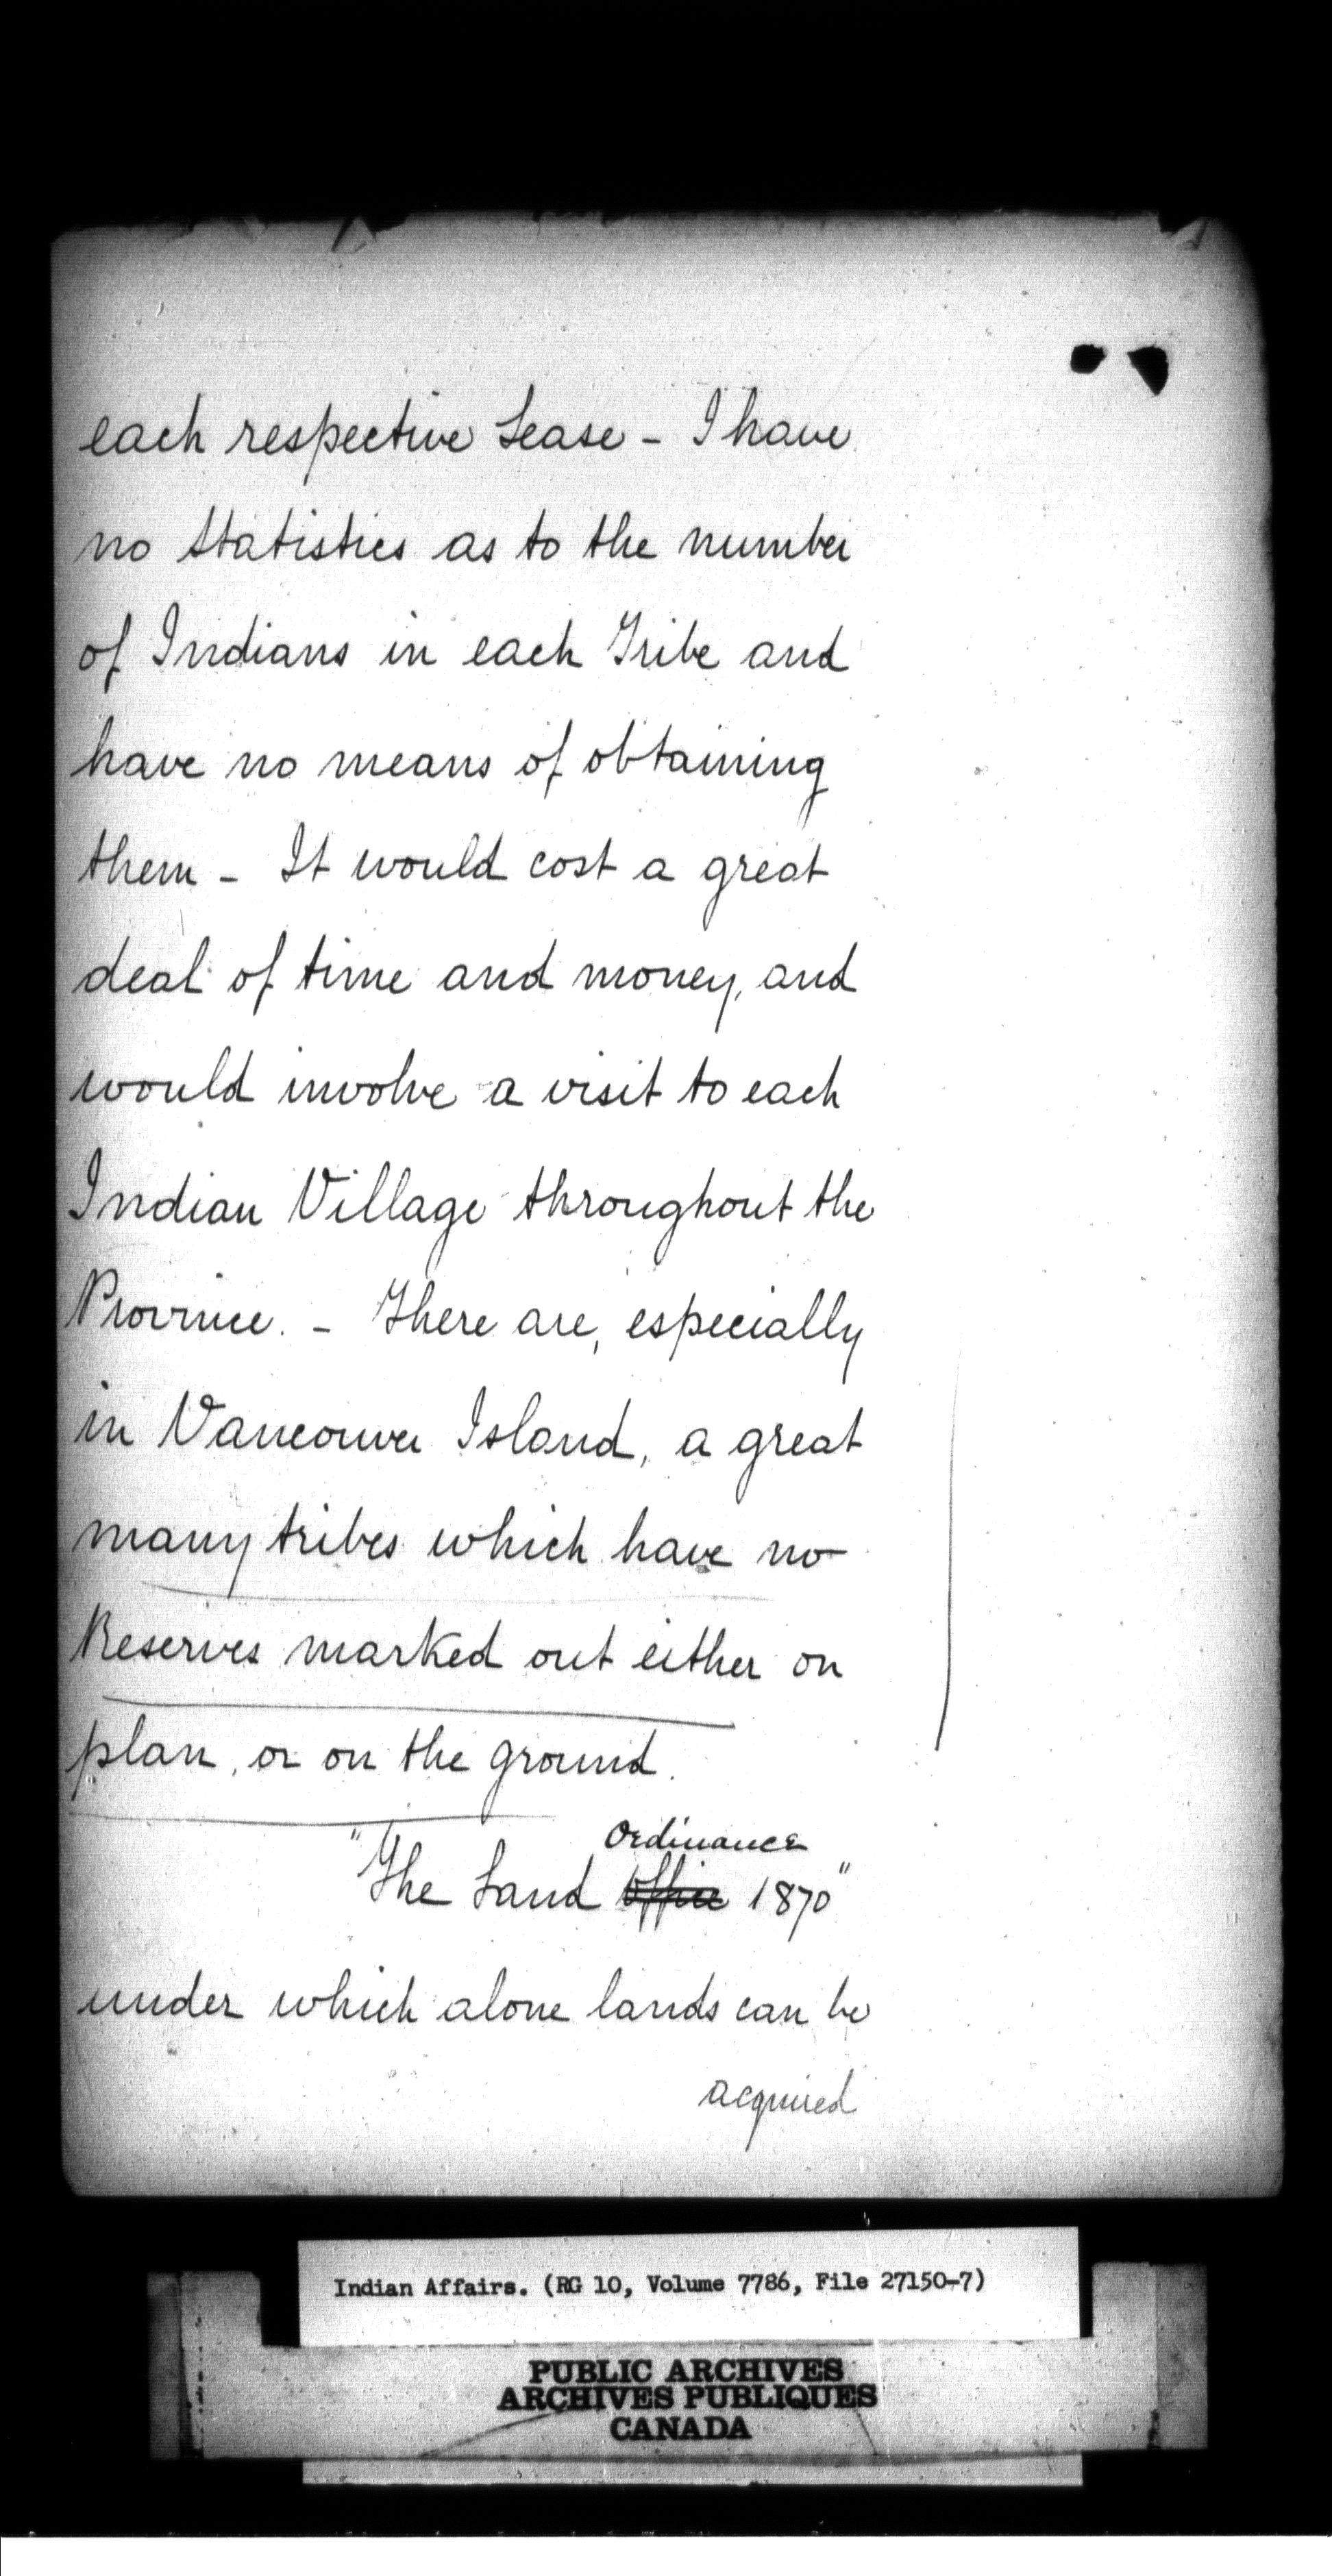 each respective Lease - I have
no Statistics as to the number
of Indians in each Tribe and
have no means of obtaining
them - It would cost a great
deal of time and money, and
would involve a visit to each
Indian Village throughout the
Province. - There are, especially
in Vancouver Island, a great
many tribes which have no
Reserves marked out either on
plan, or on the ground.
Ordinance
"The Land Office 1870"
under which alone lands can be
acquired
Indian Affairs. (RG 10, Volume 7786, File 27150-7)
PUBLIC ARCHIVES
ARCHIVES PUBLIQUES
CANADA